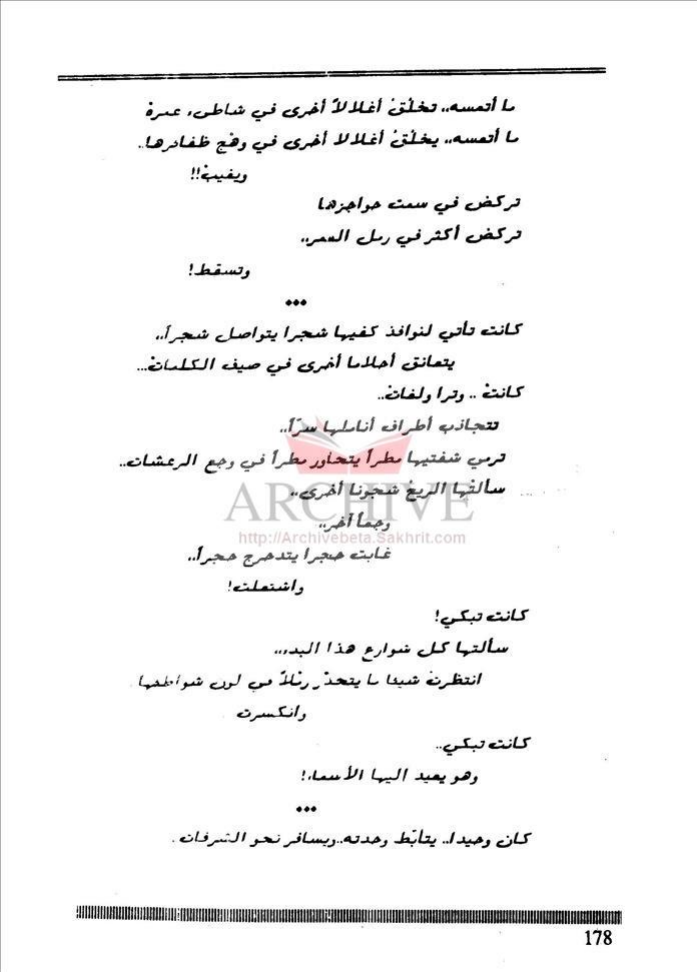 ما أتعسه.. تخلّقْ أغلالاً أخرى في شاطىء عمرهْ
ما أتعسه.. يخلّقْ أغلالا أخرى في وهج ظفائرها..
ويغيبْ!!
تركض في سمت حواجزها
تركض أكثر في رمل السمر..
وتسقط!
***
كانت تأتي لنوافذ كفيها شجرا يتواصل شجراً..
يتعانق أحلاما أخرى في صيف الكلماتْ...
كانتْ .. وترا ولغاتْ..
تتجاذب أطراف أناملها سرّاً..
ترمي شفتيها مطراً يتحاور مطراً في وجع الرعشات..
سألتْها الريحْ شجونا أخرى..
وجعاً آخر..
ARCHIVE
http://Archivebeta.Sakhrit.com
غابت حجرا يتدحرج حجراً..
واشتعلت!
كانت تبكي!
سألتها كل شوارع هذا البدء..
انتظرتْ شيئا ما يتحدّر رملاً في لون شواطئها
وانكسرت
كانت تبكي..
وهو يعيد اليها الأسماء!
***
كان وحيدا.. يتأبّط وحدته..ويسافر نحو الشرفات.
178